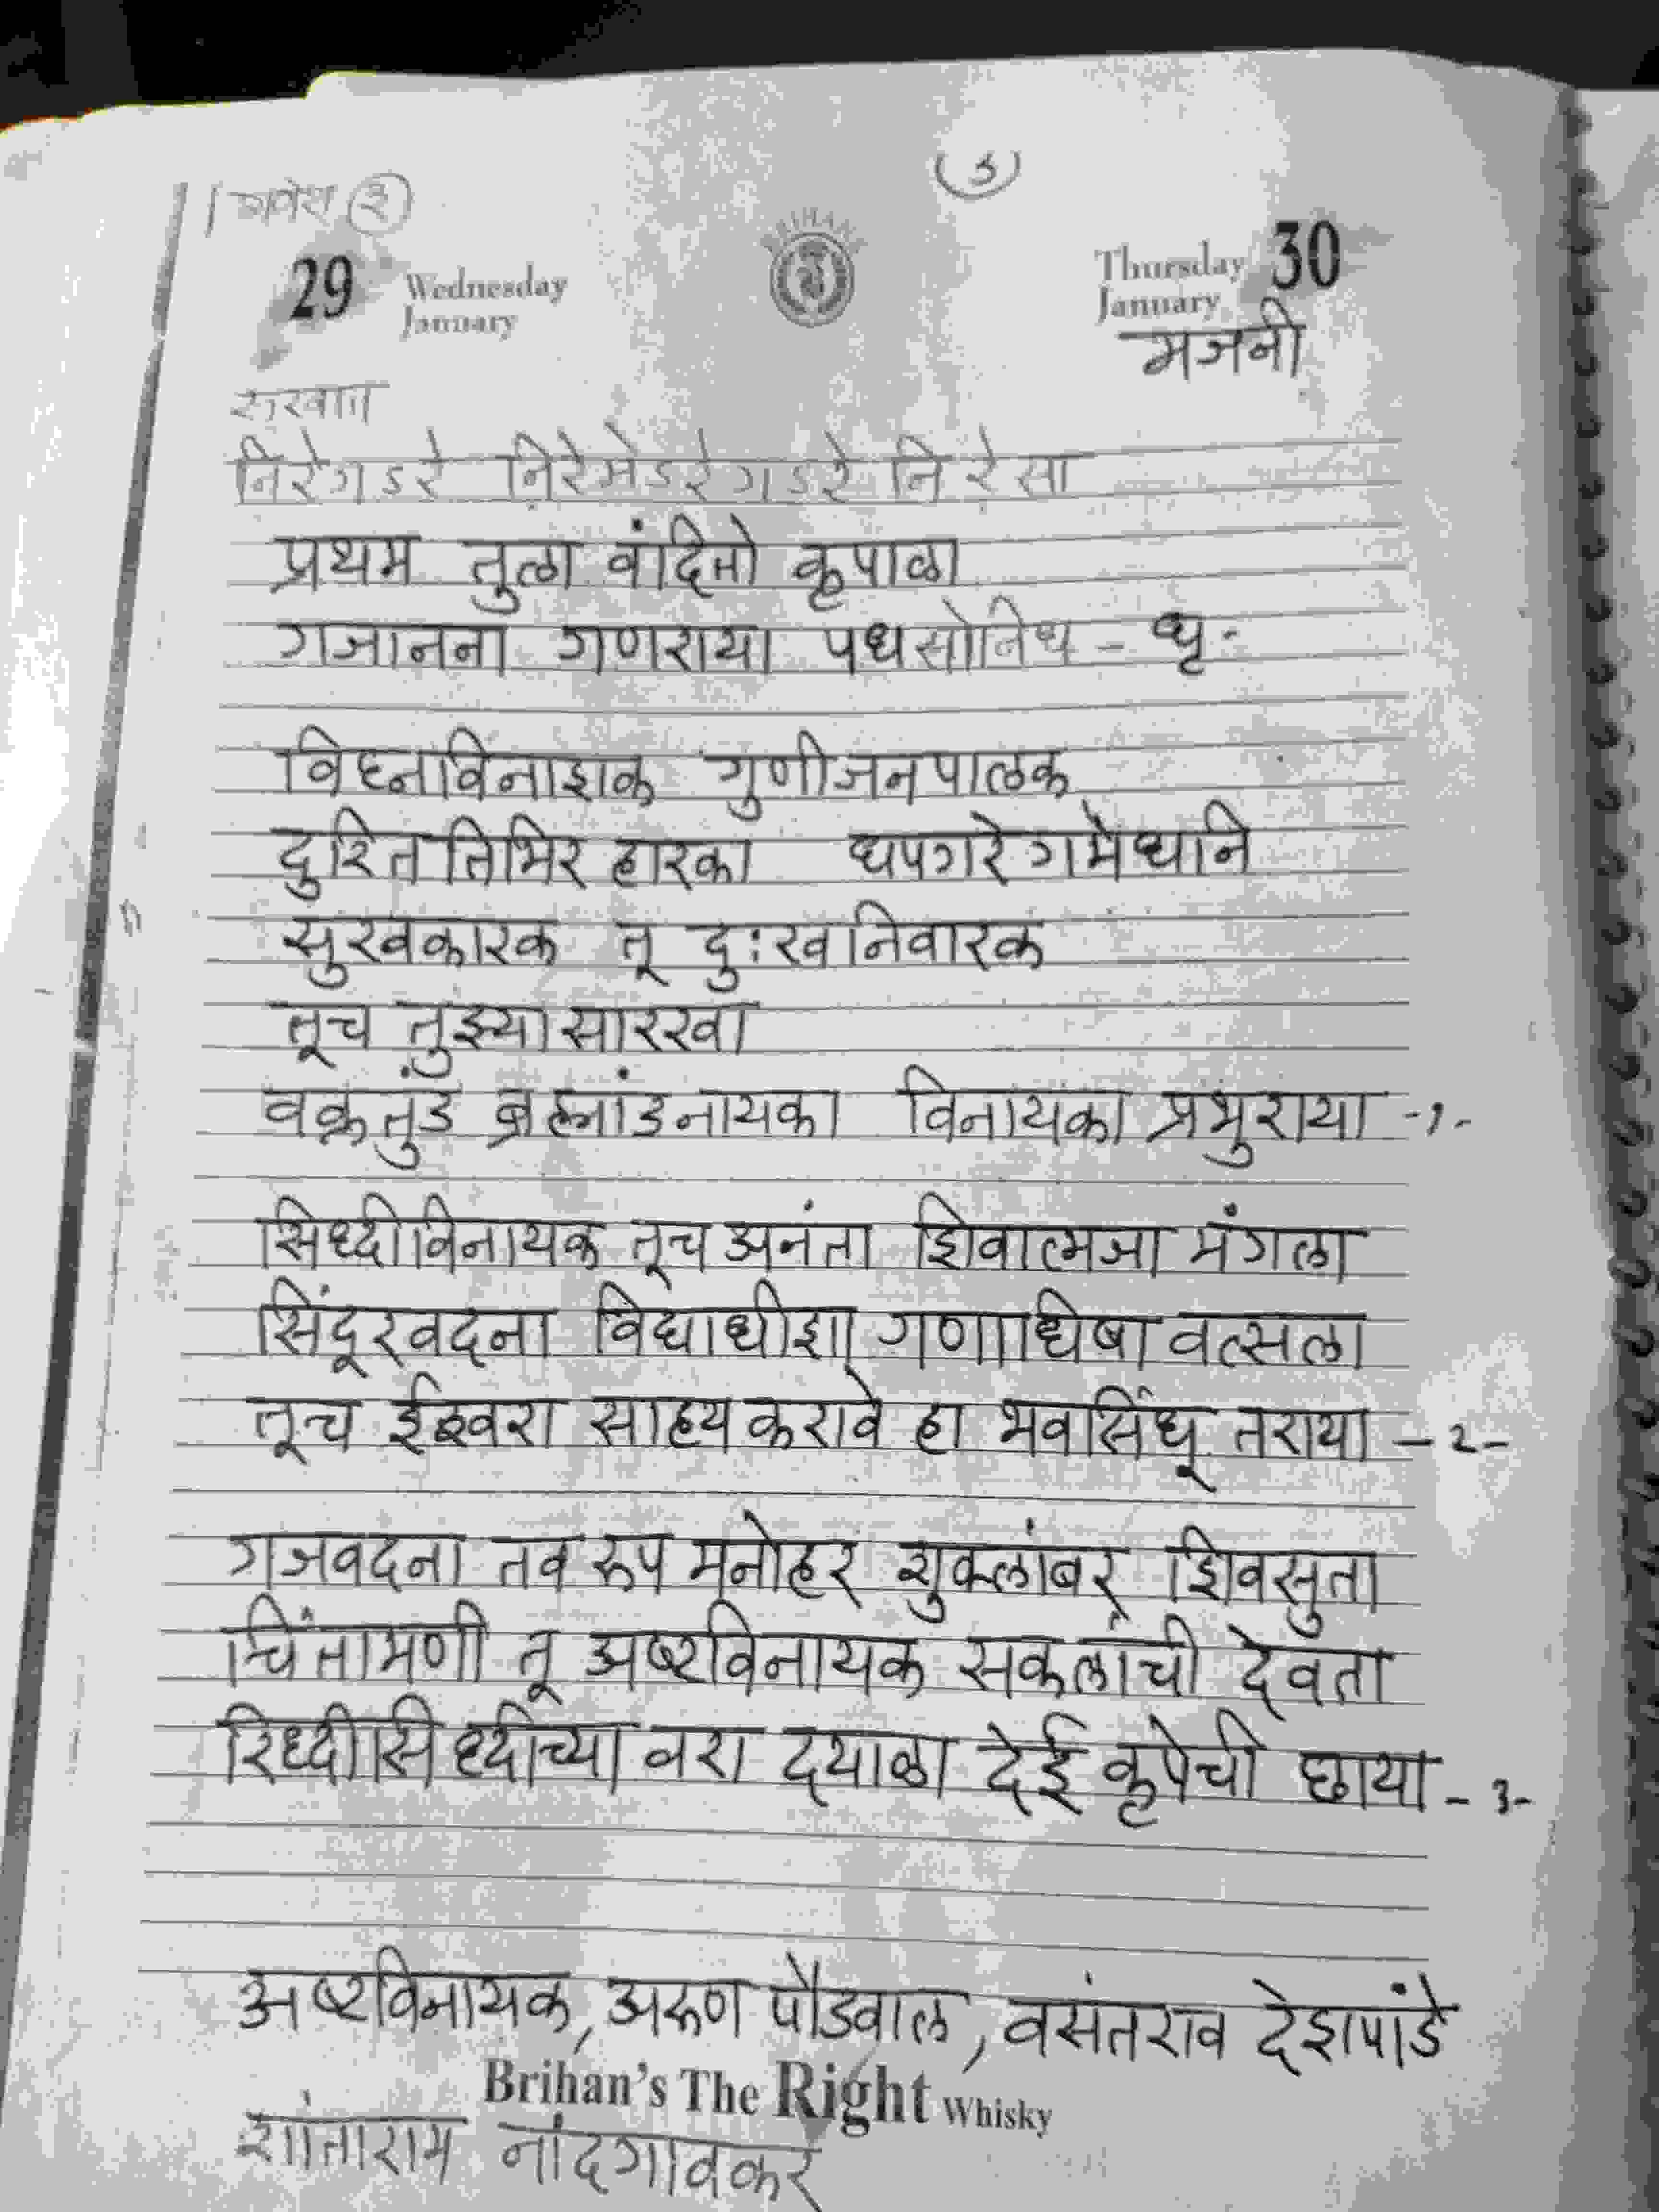 गणेश (३) (3)
29 Wednesday January BRIHANS Thursday January 30
भजनी
सुरवात
निरेगऽरे निरेमेऽरेगऽरे नि रे सा
प्रथम तुला वंदितो कृपाळा
गजानना गणराया पधसोनिध - धृ -
विघ्नविनाशक गुणीजनपालक
दुरिततिमिर हारका धपगरे गमैधनि
सुखकारक तू दुःखनिवारक
तूच तुझ्यासारखा
वक्रतुंड ब्रह्मांडनायका विनायका प्रभुराया -१-
सिध्दीविनायक तूच अनंता शिवात्मजा मंगला
सिंदूरवदना विद्याधीशा गणाधिषा वत्सला
तूच ईश्वरा साह्य करावे हा भवसिंधू तराया - २-
गजवदना तव रुप मनोहर शुक्लांबर शिवसुता
चिंतामणी तू अष्टविनायक सकलांची देवता
रिध्दीसिध्दीच्या वरा दयाळा देई कृपेची छाया - ३-
अष्टविनायक, अरुण पौडवाल, वसंतराव देशपांडे
Brihan's The Right Whisky
शांताराम नांदगावकर